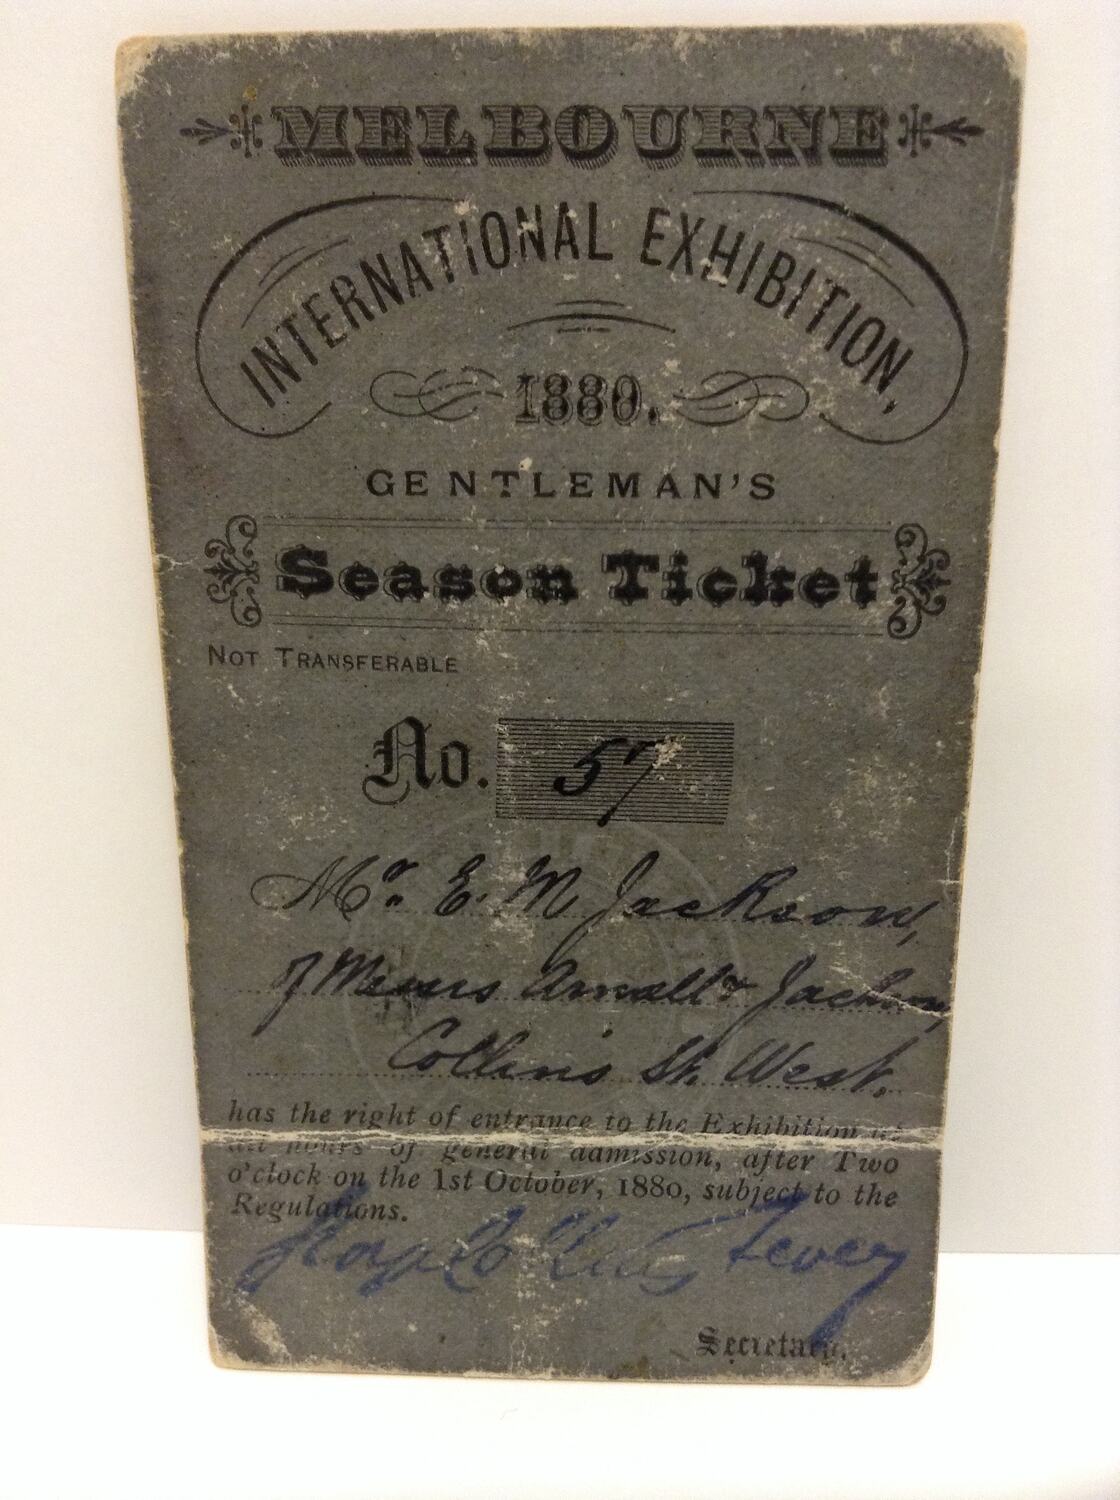 MELBOURNE
INTERNATIONAL EXHIBITION,
1880.
GENTLEMAN'S
Season Ticket
NOT TRANSFERABLE
No. 57
Mr. E. M Jackson,
of Messrs Arnall & Jackson,
Collins St. West.
has the right of entrance to the Exhibition at
all hours of general admission, after Two
o'clock on the 1st October, 1880, subject to the
Regulations.
Secretary.